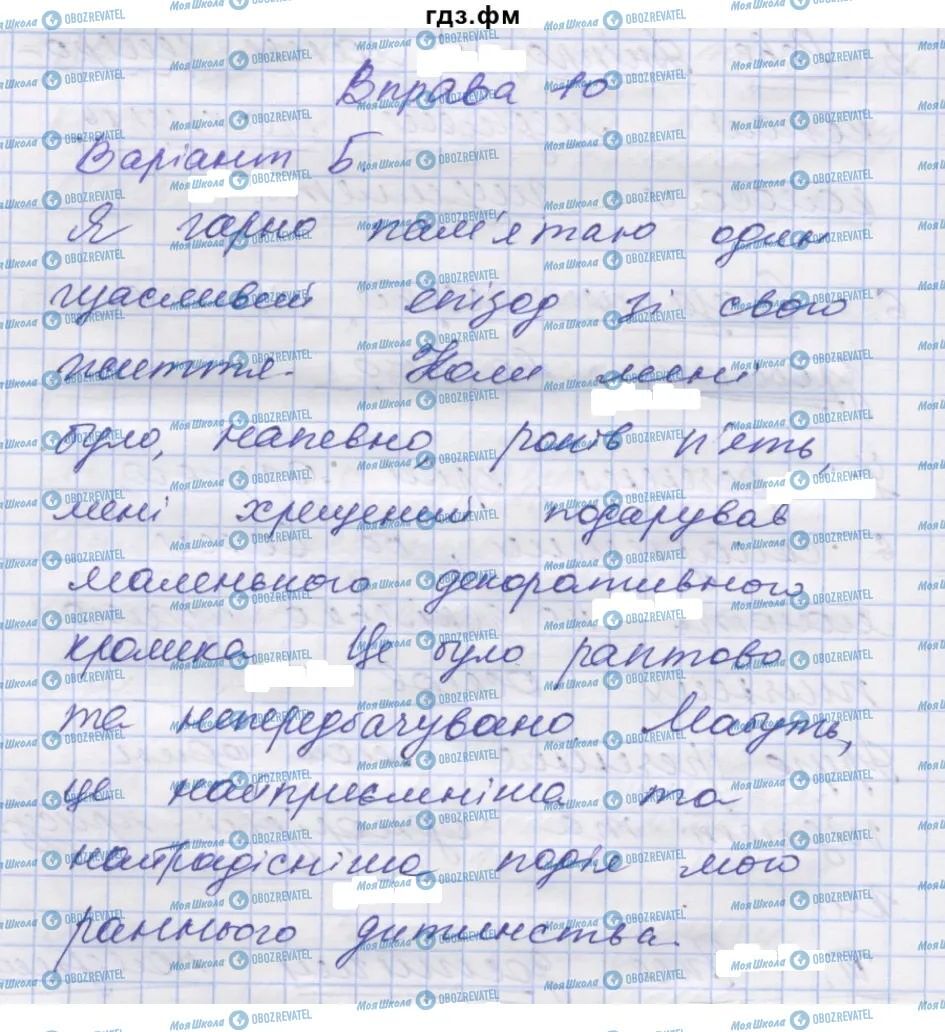 гдз.фм
Вправа 10
Варіант Б
Я гарно пам'ятаю один
щасливий епізод зі свого
життя. Коли мені
було, напевно, років п'ять,
мені хрещений подарував
маленького декоративного
кролика. Це було раптово
та непередбачувано. Мабуть,
це найприємніша та
найрадісніша подія мого
раннього дитинства.